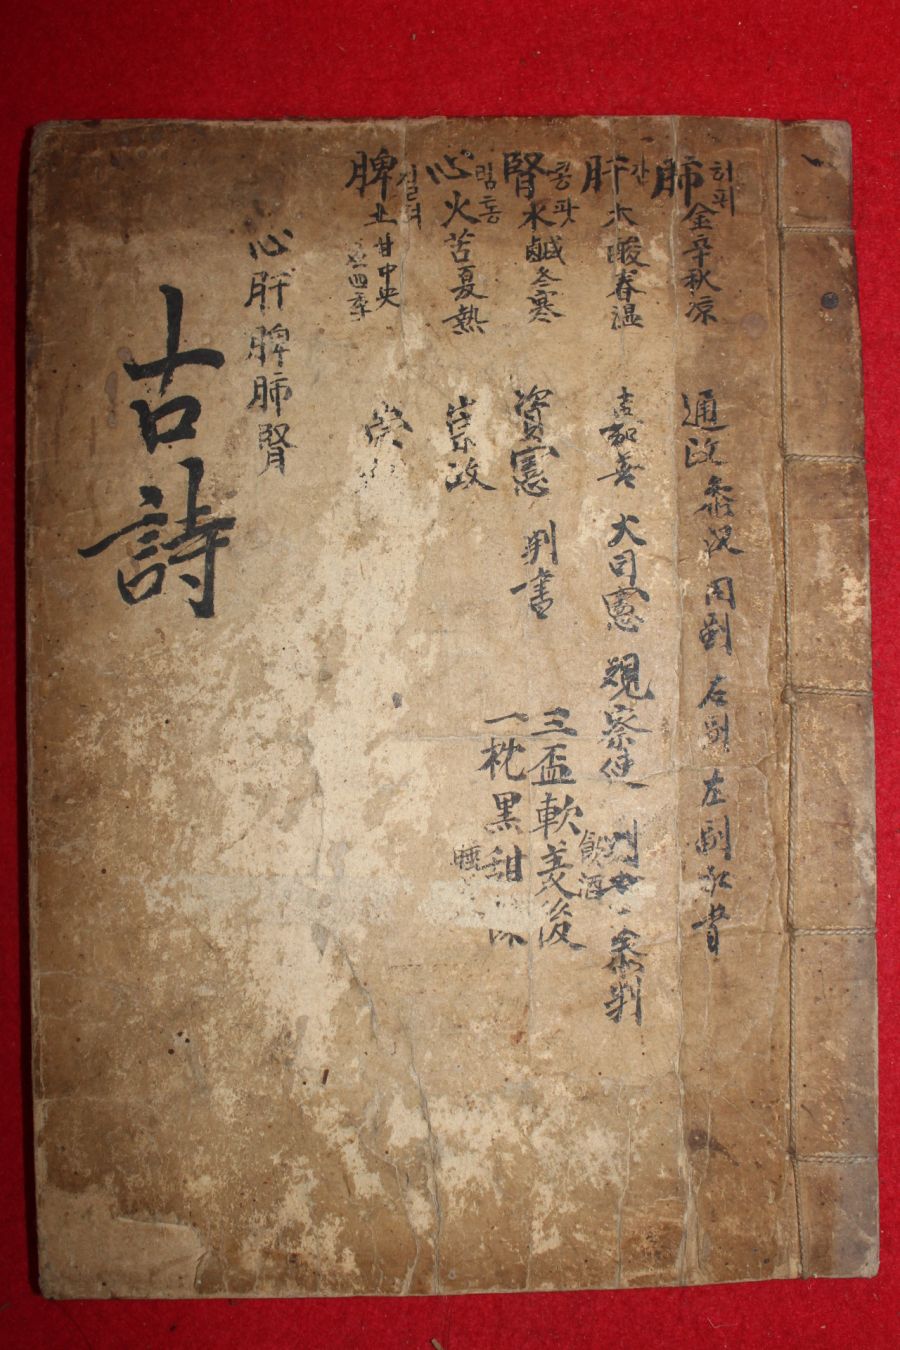 肺 허파 金辛秋凉
肝 간 木酸春温
腎 콩팟 水鹹冬寒
心 렴통 火苦夏熱
脾 길헤 土甘中央 四季
通政 參議 同副 右副 左副
嘉善 大司憲 觀察使 參判
資憲 判書
崇政
崇
三盃軟羙後 飮酒
一枕黒甜 睡
心肝脾肺腎
古詩